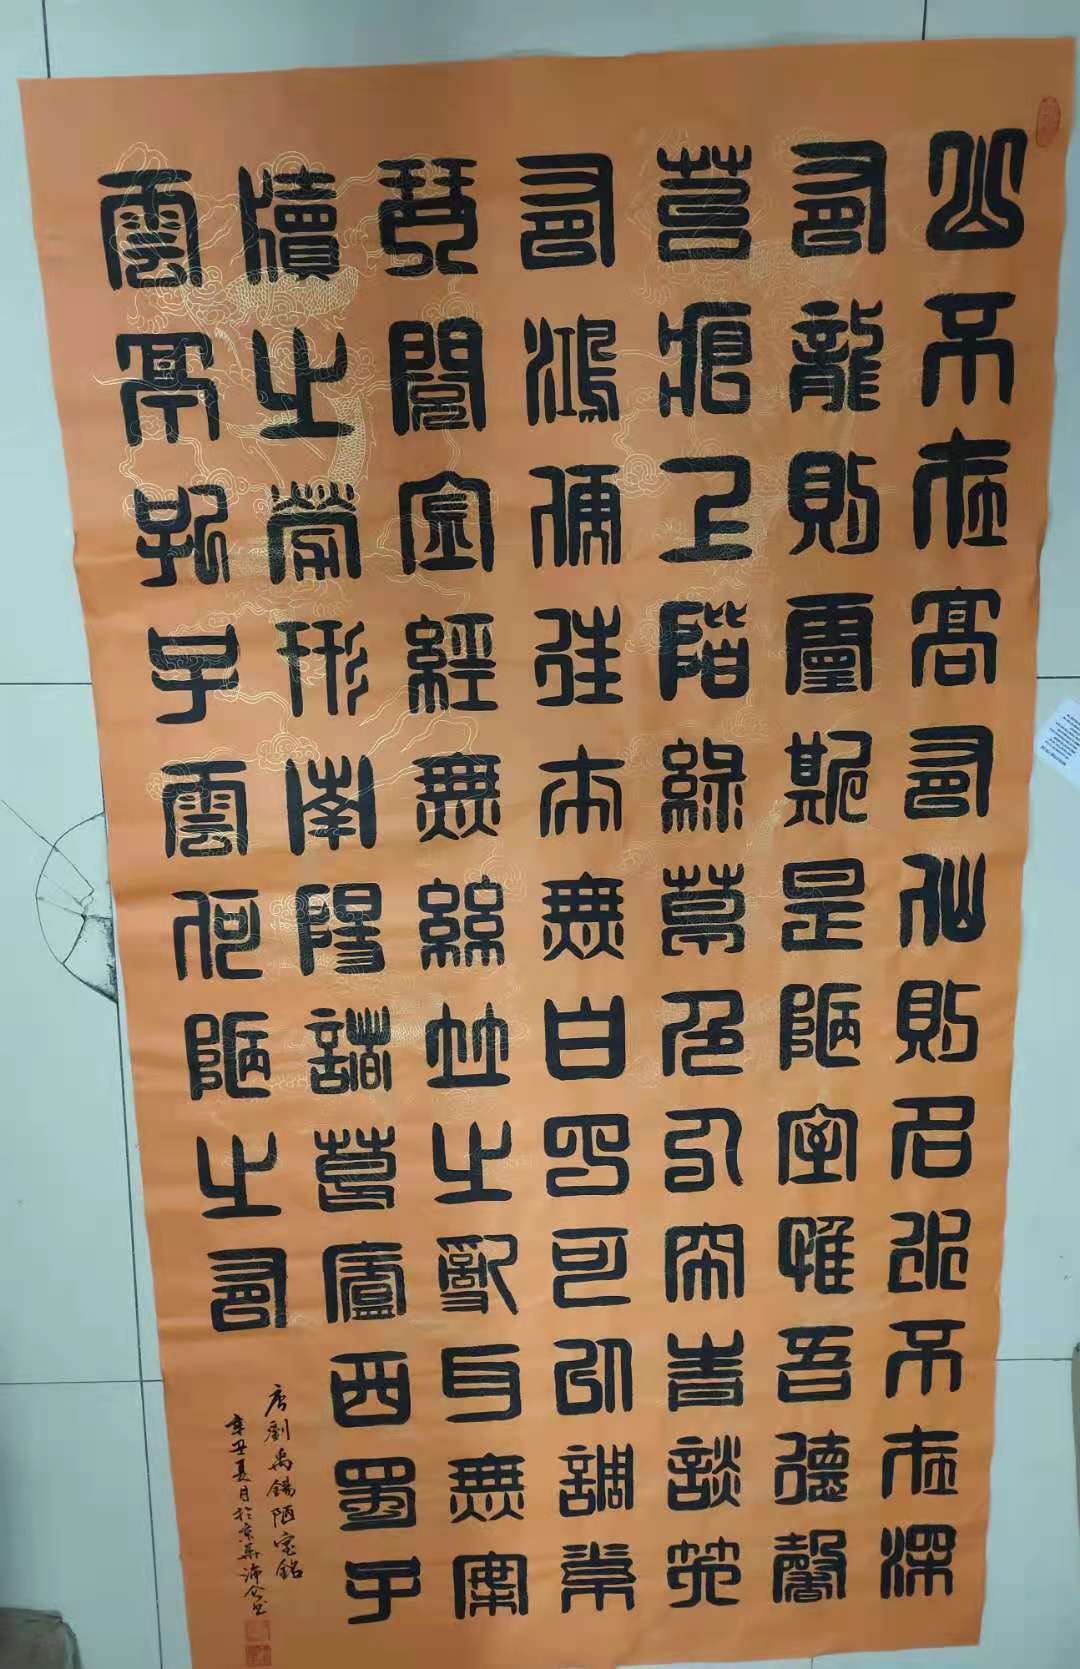 山不在高有仙則名水不在深
有龍則靈斯是陋室惟吾德馨
苔痕上階綠草色入帘青談笑
有鴻儒往來無白丁可以調素
琴閱金經無絲竹之亂耳無案
牘之勞形南陽諸葛廬西蜀子
雲亭孔子雲何陋之有
唐劉禹錫陋室銘
辛丑夏月於京華